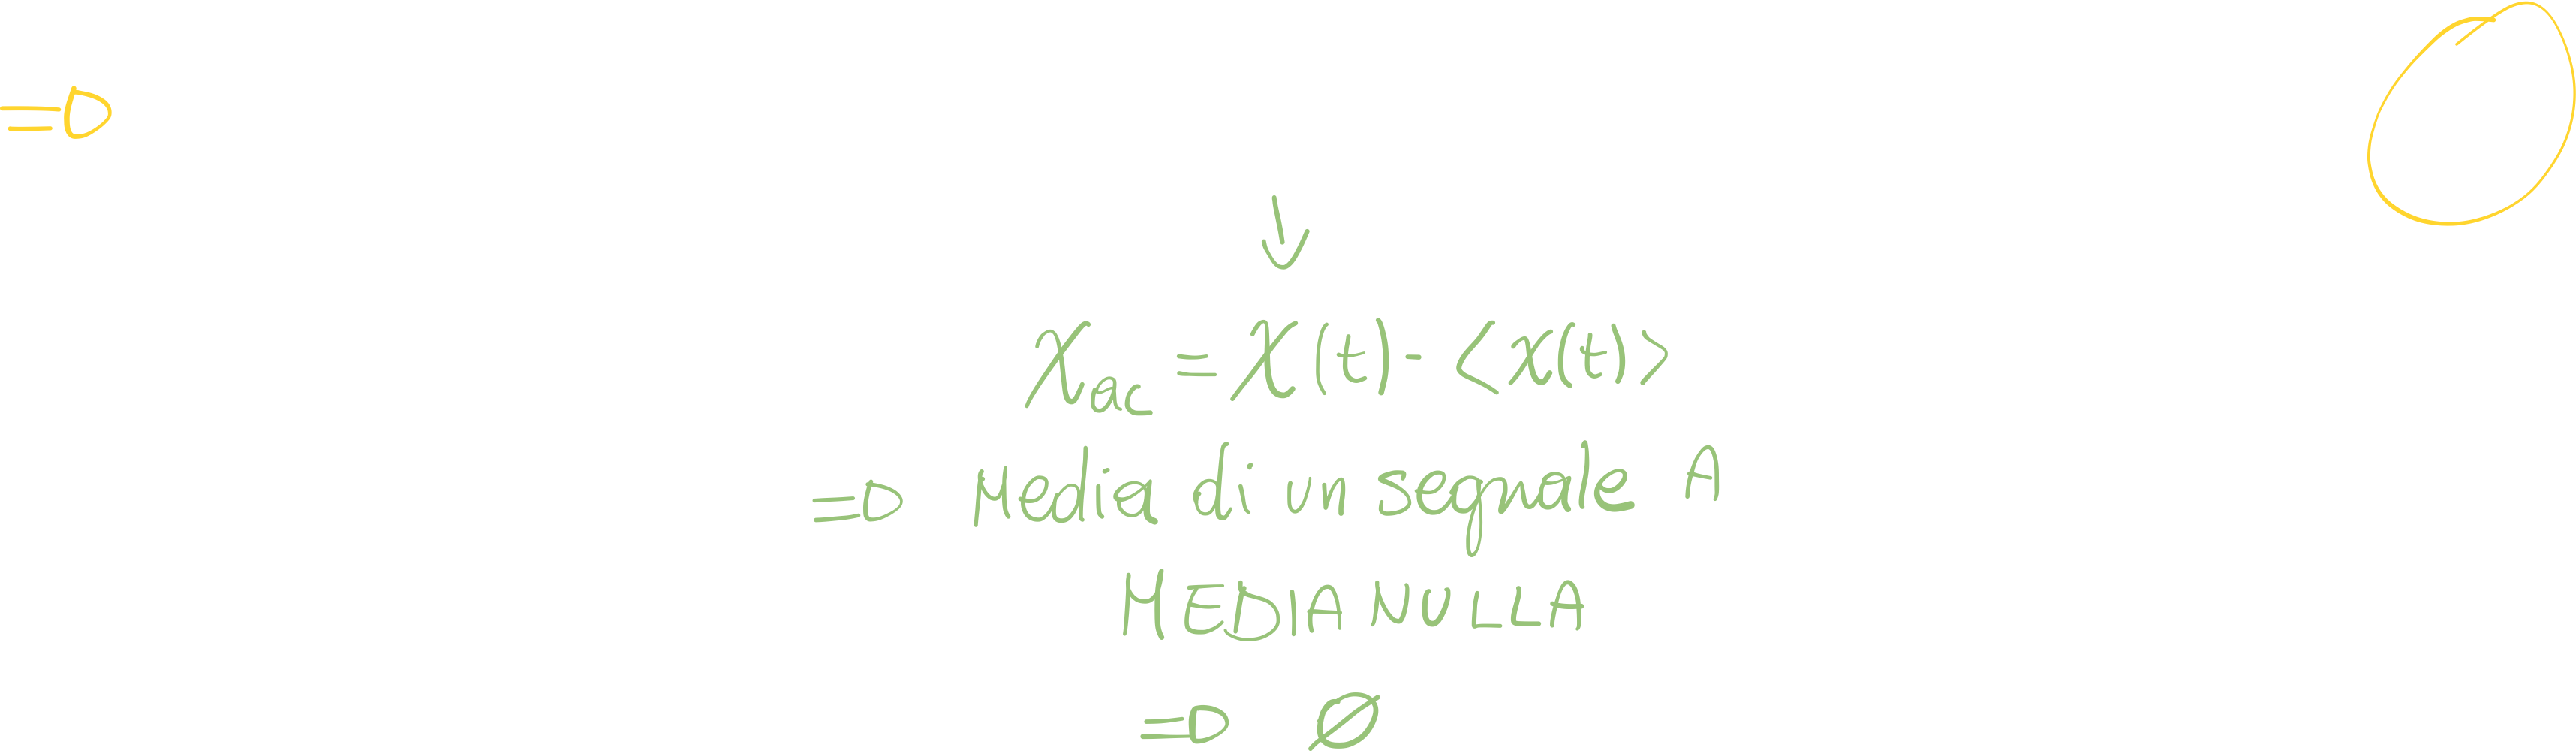 ⇒
↓
Xac = X(t) - <x(t)>
⇒ Media di un segnale A
MEDIA NULLA
⇒ ∅